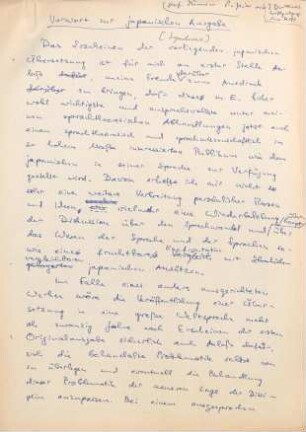 Vorwort zur japanischen Ausgabe
(Synchronie)
Das Erscheinen der vorliegenden japanischen
Übersetzung ist für mich an erster Stelle der
meine Freude darüber zum Ausdruck
zu bringen, daß diese m. E. bisher
wohl wichtigste und anspruchsvollste unter meinen
sprachtheoretischen Abhandlungen jetzt auch
einem sprachtheoretisch und sprachwissenschaftlich in
so hohem Maße interessierten Publikum wie dem
japanischen in seiner Sprache zur Verfügung
gestellt wird. Davon erhoffe ich mir nicht so
sehr eine weitere Verbreitung persönlicher Thesen
und Ideen, vielmehr eine Wiederbelebung
der Diskussion über den Sprachwandel und über
das Wesen der Sprache und der Sprachen sowie
eine fruchtbare mit ähnlichen
japanischen Ansätzen.
Im Falle eines anders ausgerichteten
Werkes wäre die Veröffentlichung einer Übersetzung
in eine große Weltsprache mehr
als zwanzig Jahre nach Erscheinen der ersten
Originalausgabe sicherlich auch Anlaß dafür,
sich die behandelte Problematik selbst neu
zu überlegen und eventuell die Behandlung
dieser Problematik der neueren Lage der Disziplin
anzupassen. Bei einem ausgesprochen